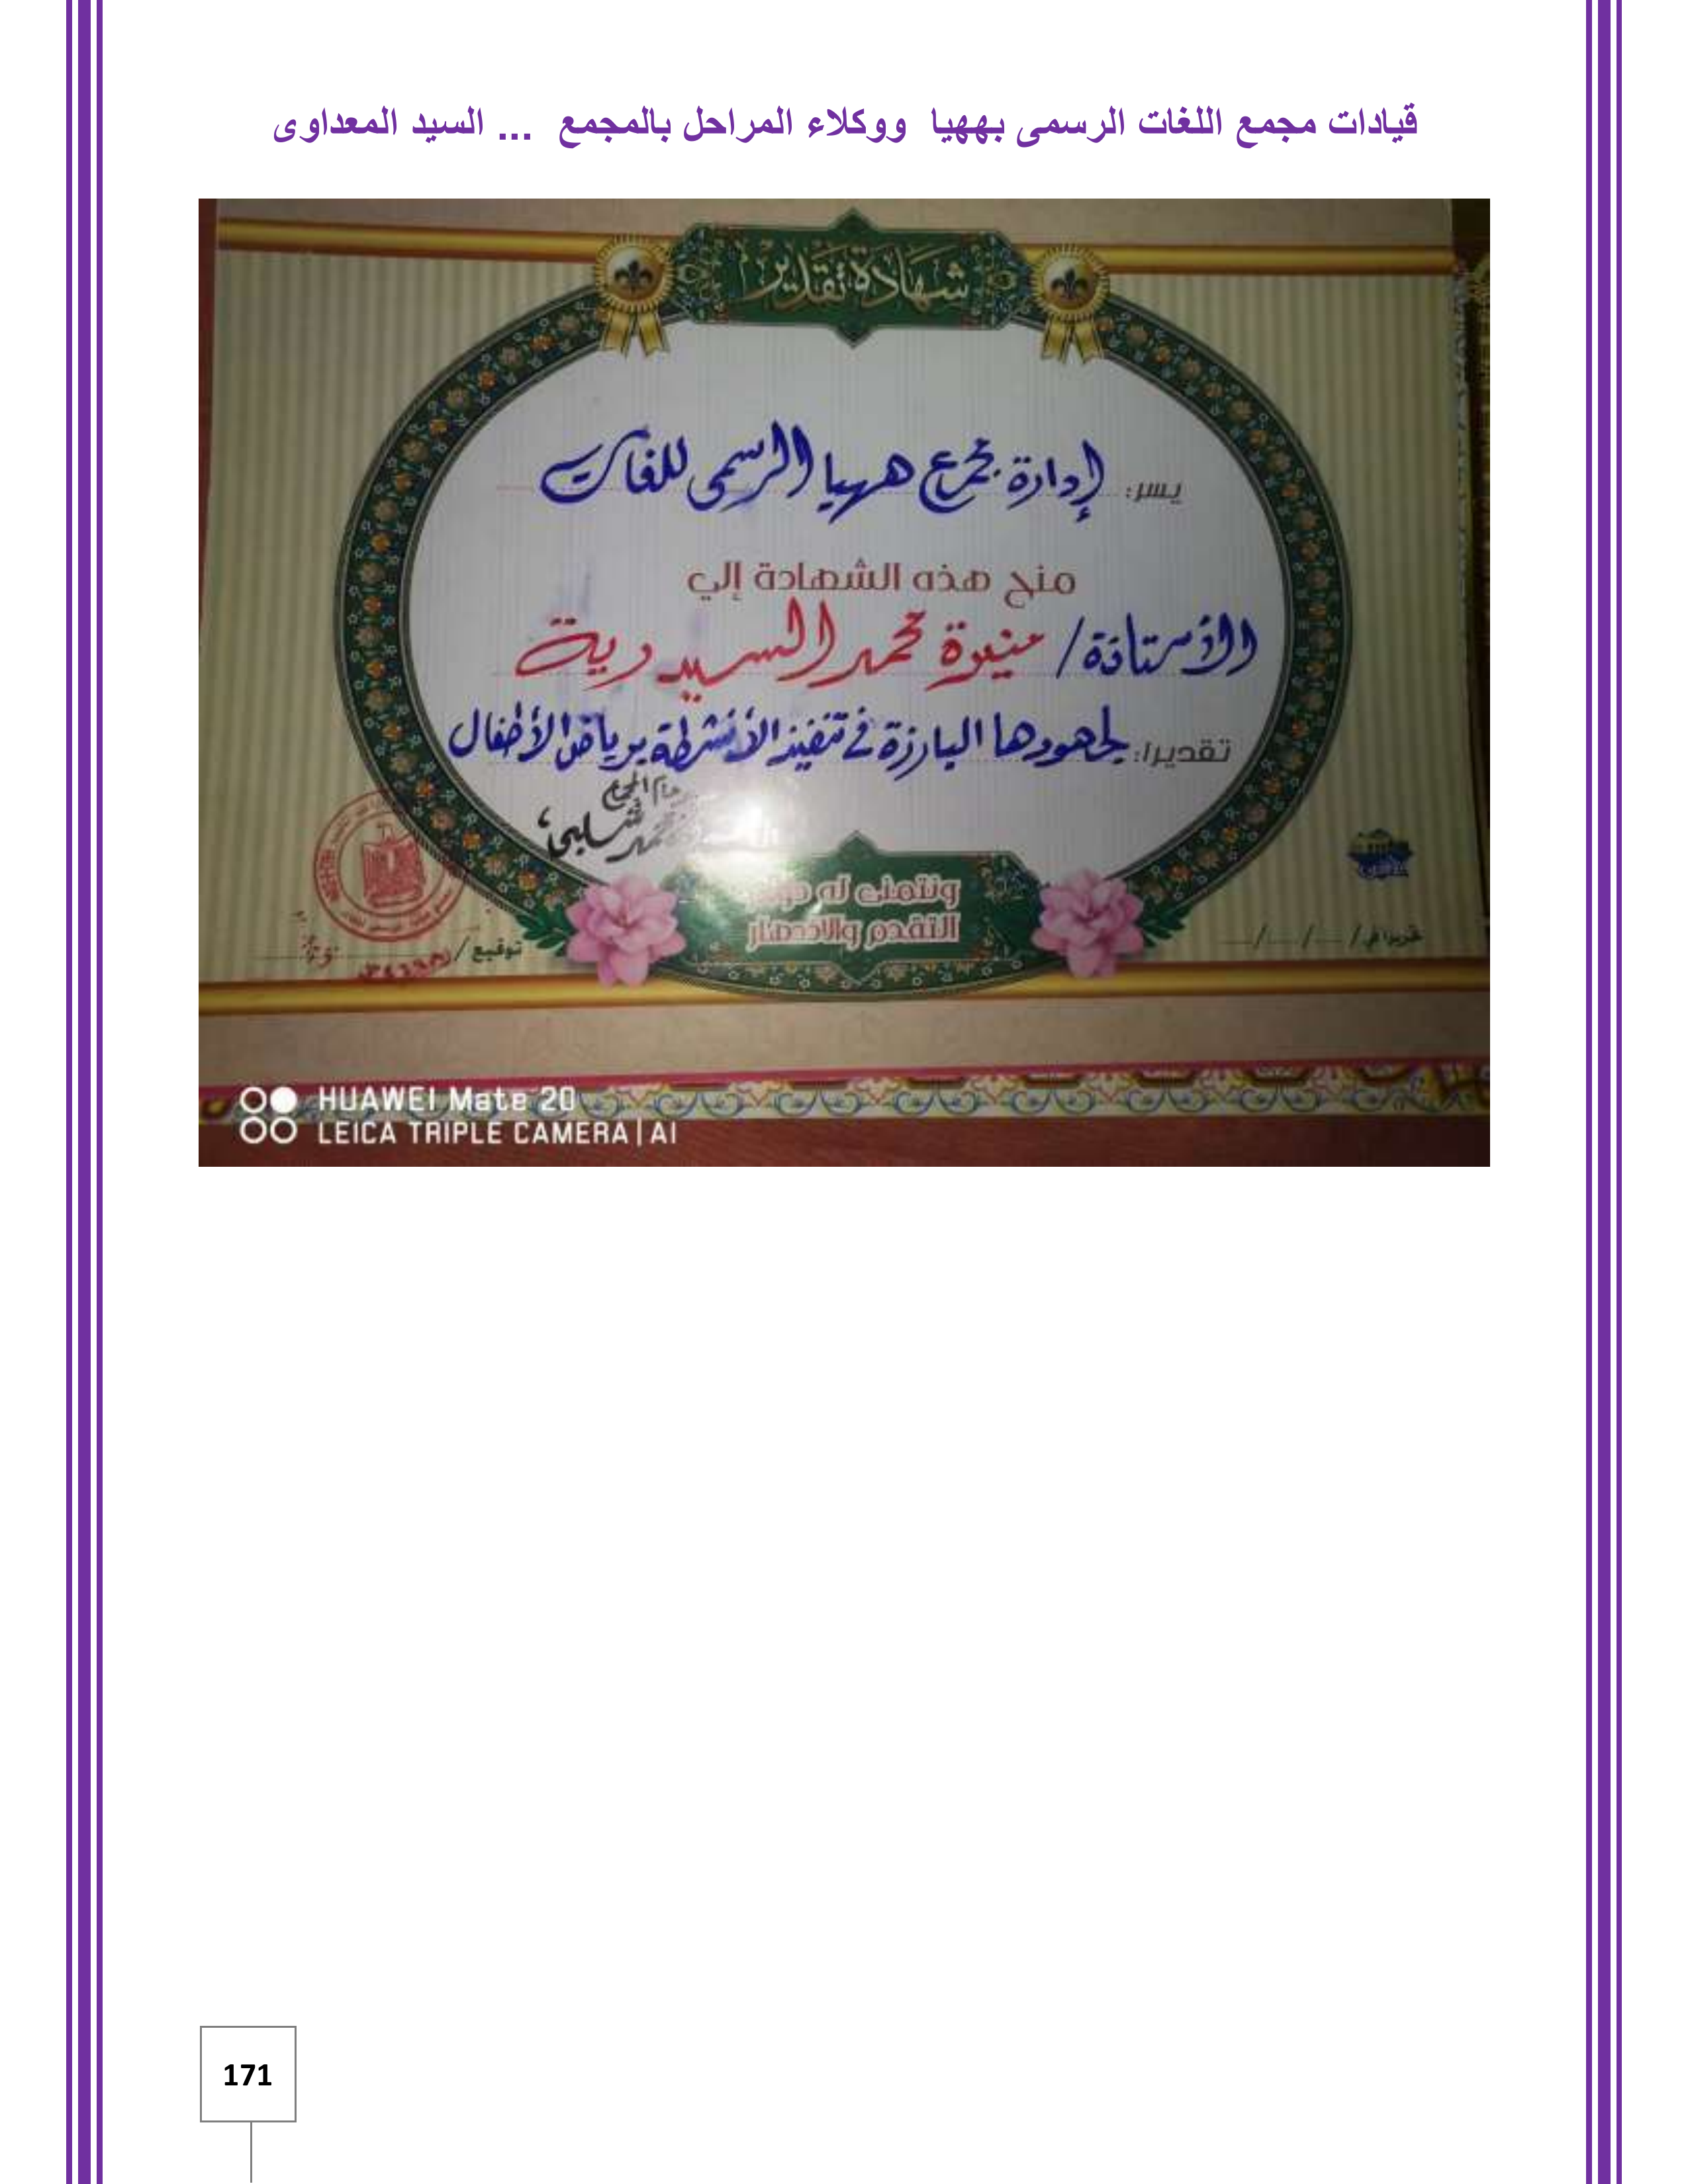 قيادات مجمع اللغات الرسمى بههيا ووكلاء المراحل بالمجمع ... السيد المعداوى
شهادة تقدير
يسر: إدارة مجمع ههيا الرسمى للغات
منح هذه الشهادة إلي
الأستاذة/ منيرة محمد السيد دية
تقديرا: لجهودها البارزة في تنفيذ الأنشطة برياض الأطفال
ونتمنى له
التقدم والازدهار
توقيع/
تحريرا في / / /
HUAWEI Mate 20
LEICA TRIPLE CAMERA | AI
171